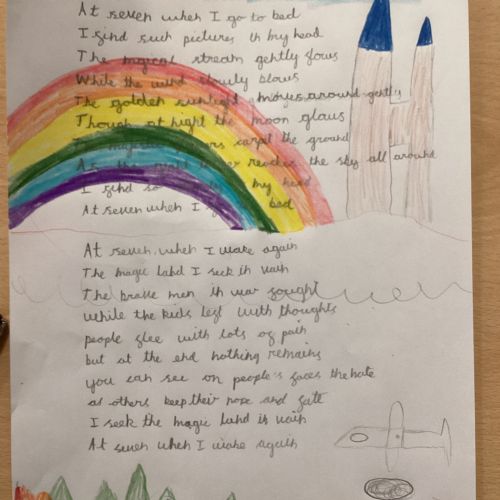 At seven when I go to bed
I find such pictures in my head
The magical stream gently flows
While the wind slowly blows
The golden sunlight moves around gently
Though at night the moon glows
The carpet the ground
As the reaches the sky all around
I find my head
At seven when I bed
At seven when I wake again
The magic land I seek in vain
The brave men in war fought
while the kids left with thoughts
people flee with lots of pain
but at the end nothing remains
you can see on people's faces the hate
as others keep their hope and fate
I seek the magic land in vain
At seven when I wake again